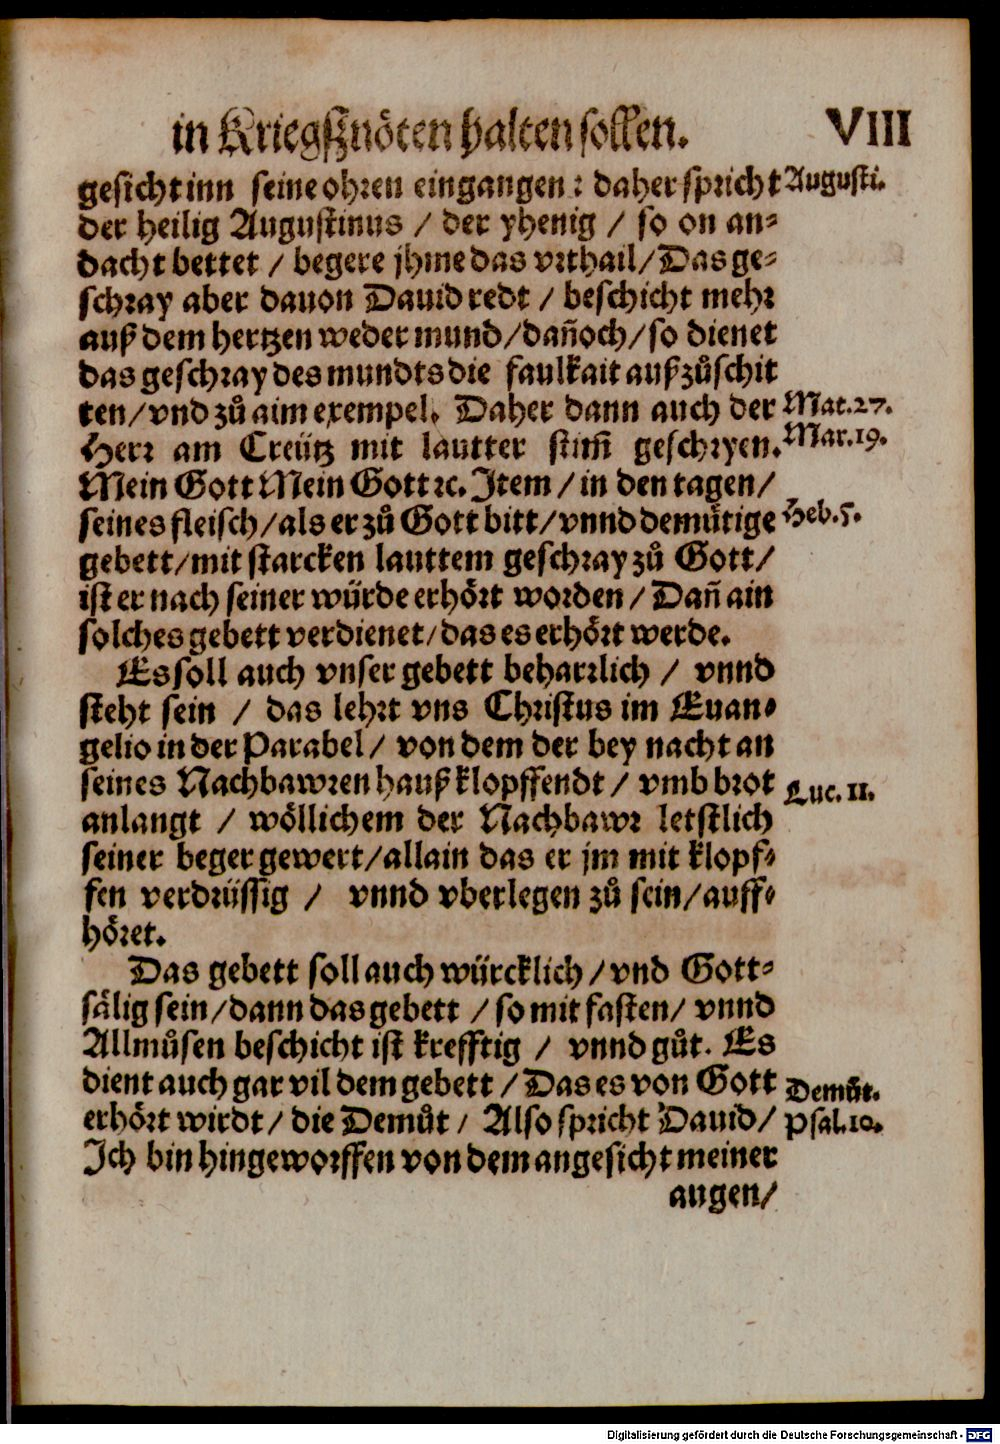 in Kriegßnöten halten sollen. VIII
gesicht inn seine ohren eingangen: daher spricht Augusti.
der heilig Augustinus / der yhenig / so on an⸗
dacht bettet / begere jhme das vrthail / Das ge⸗
schray aber dauon Dauid redt / beschicht mehr
auß dem hertzen weder mund / dañoch / so dienet
das geschray des mundts die faulkait auß zůschit
ten / vnd zů aim exempel. Daher dann auch der Mat. 27.
Herr am Creütz mit lautter stim̃ geschryen. Mar. 19.
Mein Gott Mein Gott ꝛc. Item / in den tagen /
seines fleisch / als er zů Gott bitt / vnnd demütige Heb. 5.
gebett / mit starcken lauttem geschray zů Gott /
ist er nach seiner würde erhört worden / Dañ ain
solches gebett verdienet / das es erhört werde.
Es soll auch vnser gebett beharrlich / vnnd
steht sein / das lehrt vns Christus im Euan⸗
gelio in der Parabel / von dem der bey nacht an
seines Nachbawren hauß klopffendt / vmb brot Luc. 11.
anlangt / wöllichem der Nachbawr letstlich
seiner beger gewert / allain das er jm mit klopf⸗
fen verdrüssig / vnnd vberlegen zů sein / auff⸗
höret.
Das gebett soll auch würcklich / vnd Gott⸗
sälig sein / dann das gebett / so mit fasten / vnnd
Allmůsen beschicht ist krefftig / vnnd gůt. Es
dient auch gar vil dem gebett / Das es von Gott Demůt.
erhört wirdt / die Demůt / Also spricht Dauid / Psal. 10.
Ich bin hingeworffen von dem angesicht meiner
augen /
Digitalisierung gefördert durch die Deutsche Forschungsgemeinschaft - DFG